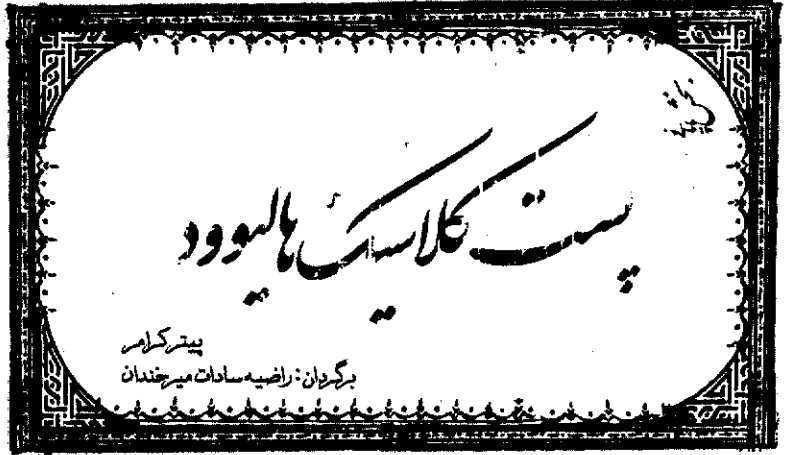 پست کلاسیک هالیوود
پیتر کرامر
برگردان: راضیه سادات میرخندان